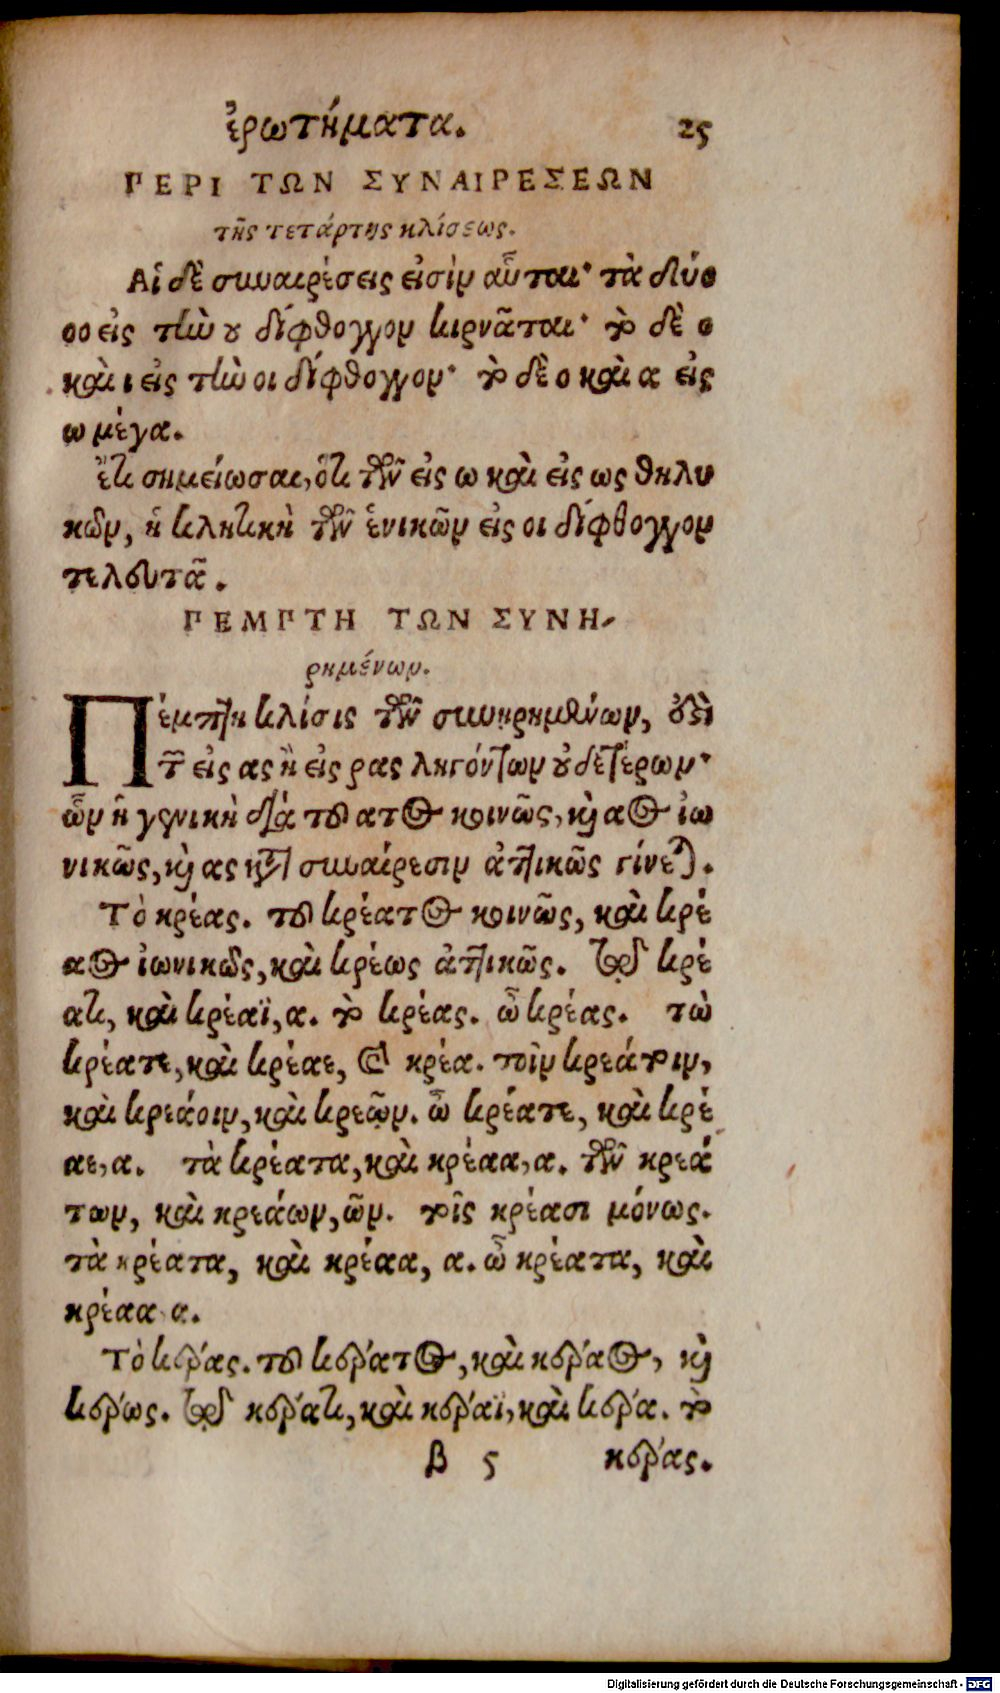 ἐρωτήματα. 25
ΠΕΡΙ ΤΩΝ ΣΥΝΑΙΡΕΣΕΩΝ
τῆς τετάρτης κλίσεως.
Αἱ δὲ συναιρέσεις εἰσὶν αὗται· τὰ δύο
οο εἰς τὴν ου δίφθογγον κιρνᾶται· τὸ δὲ ο
καὶ ι εἰς τὴν οι δίφθογγον· τὸ δὲ ο καὶ α εἰς
ω μέγα.
ἔτι σημείωσαι, ὅτι τῶν εἰς ω καὶ εἰς ως θηλυ
κῶν, ἡ κλητικὴ τῶν ἑνικῶν εἰς οι δίφθογγον
τελευτᾶ.
ΠΕΜΠΤΗ ΤΩΝ ΣΥΝΗ-
ρημένων.
Πέμπτη κλίσις τῶν συνῃρημένων, ἐστὶ
τῶν εἰς ας ἢ εἰς ρας ληγόντων οὐδετέρων·
ὧν ἡ γενικὴ διὰ τοῦ ατος κοινῶς, καὶ αος ἰω
νικῶς, καὶ ως κατὰ συναίρεσιν ἀττικῶς γίνεται.
Τὸ κρέας. τοῦ κρέατος κοινῶς, καὶ κρέ
αος ἰωνικῶς, καὶ κρέως ἀττικῶς. τῷ κρέ
ατι, καὶ κρέαϊ, α. τὸ κρέας. ὦ κρέας. τὼ
κρέατε, καὶ κρέαε, καὶ κρέα. τοῖν κρεάτοιν,
καὶ κρεάοιν, καὶ κρεῷν. ὦ κρέατε, καὶ κρέ
αε, α. τὰ κρέατα, καὶ κρέαα, α. τῶν κρεά
των, καὶ κρεάων, ῶν. τοῖς κρέασι μόνως.
τὰ κρέατα, καὶ κρέαα, α. ὦ κρέατα, καὶ
κρέαα α.
Τὸ κέρας. τοῦ κέρατος, καὶ κέραος, καὶ
κέρως. τῷ κέρατι, καὶ κέραϊ, καὶ κέρα. τὸ
β 5 κέρας.
Digitalisierung gefördert durch die Deutsche Forschungsgemeinschaft - DFG